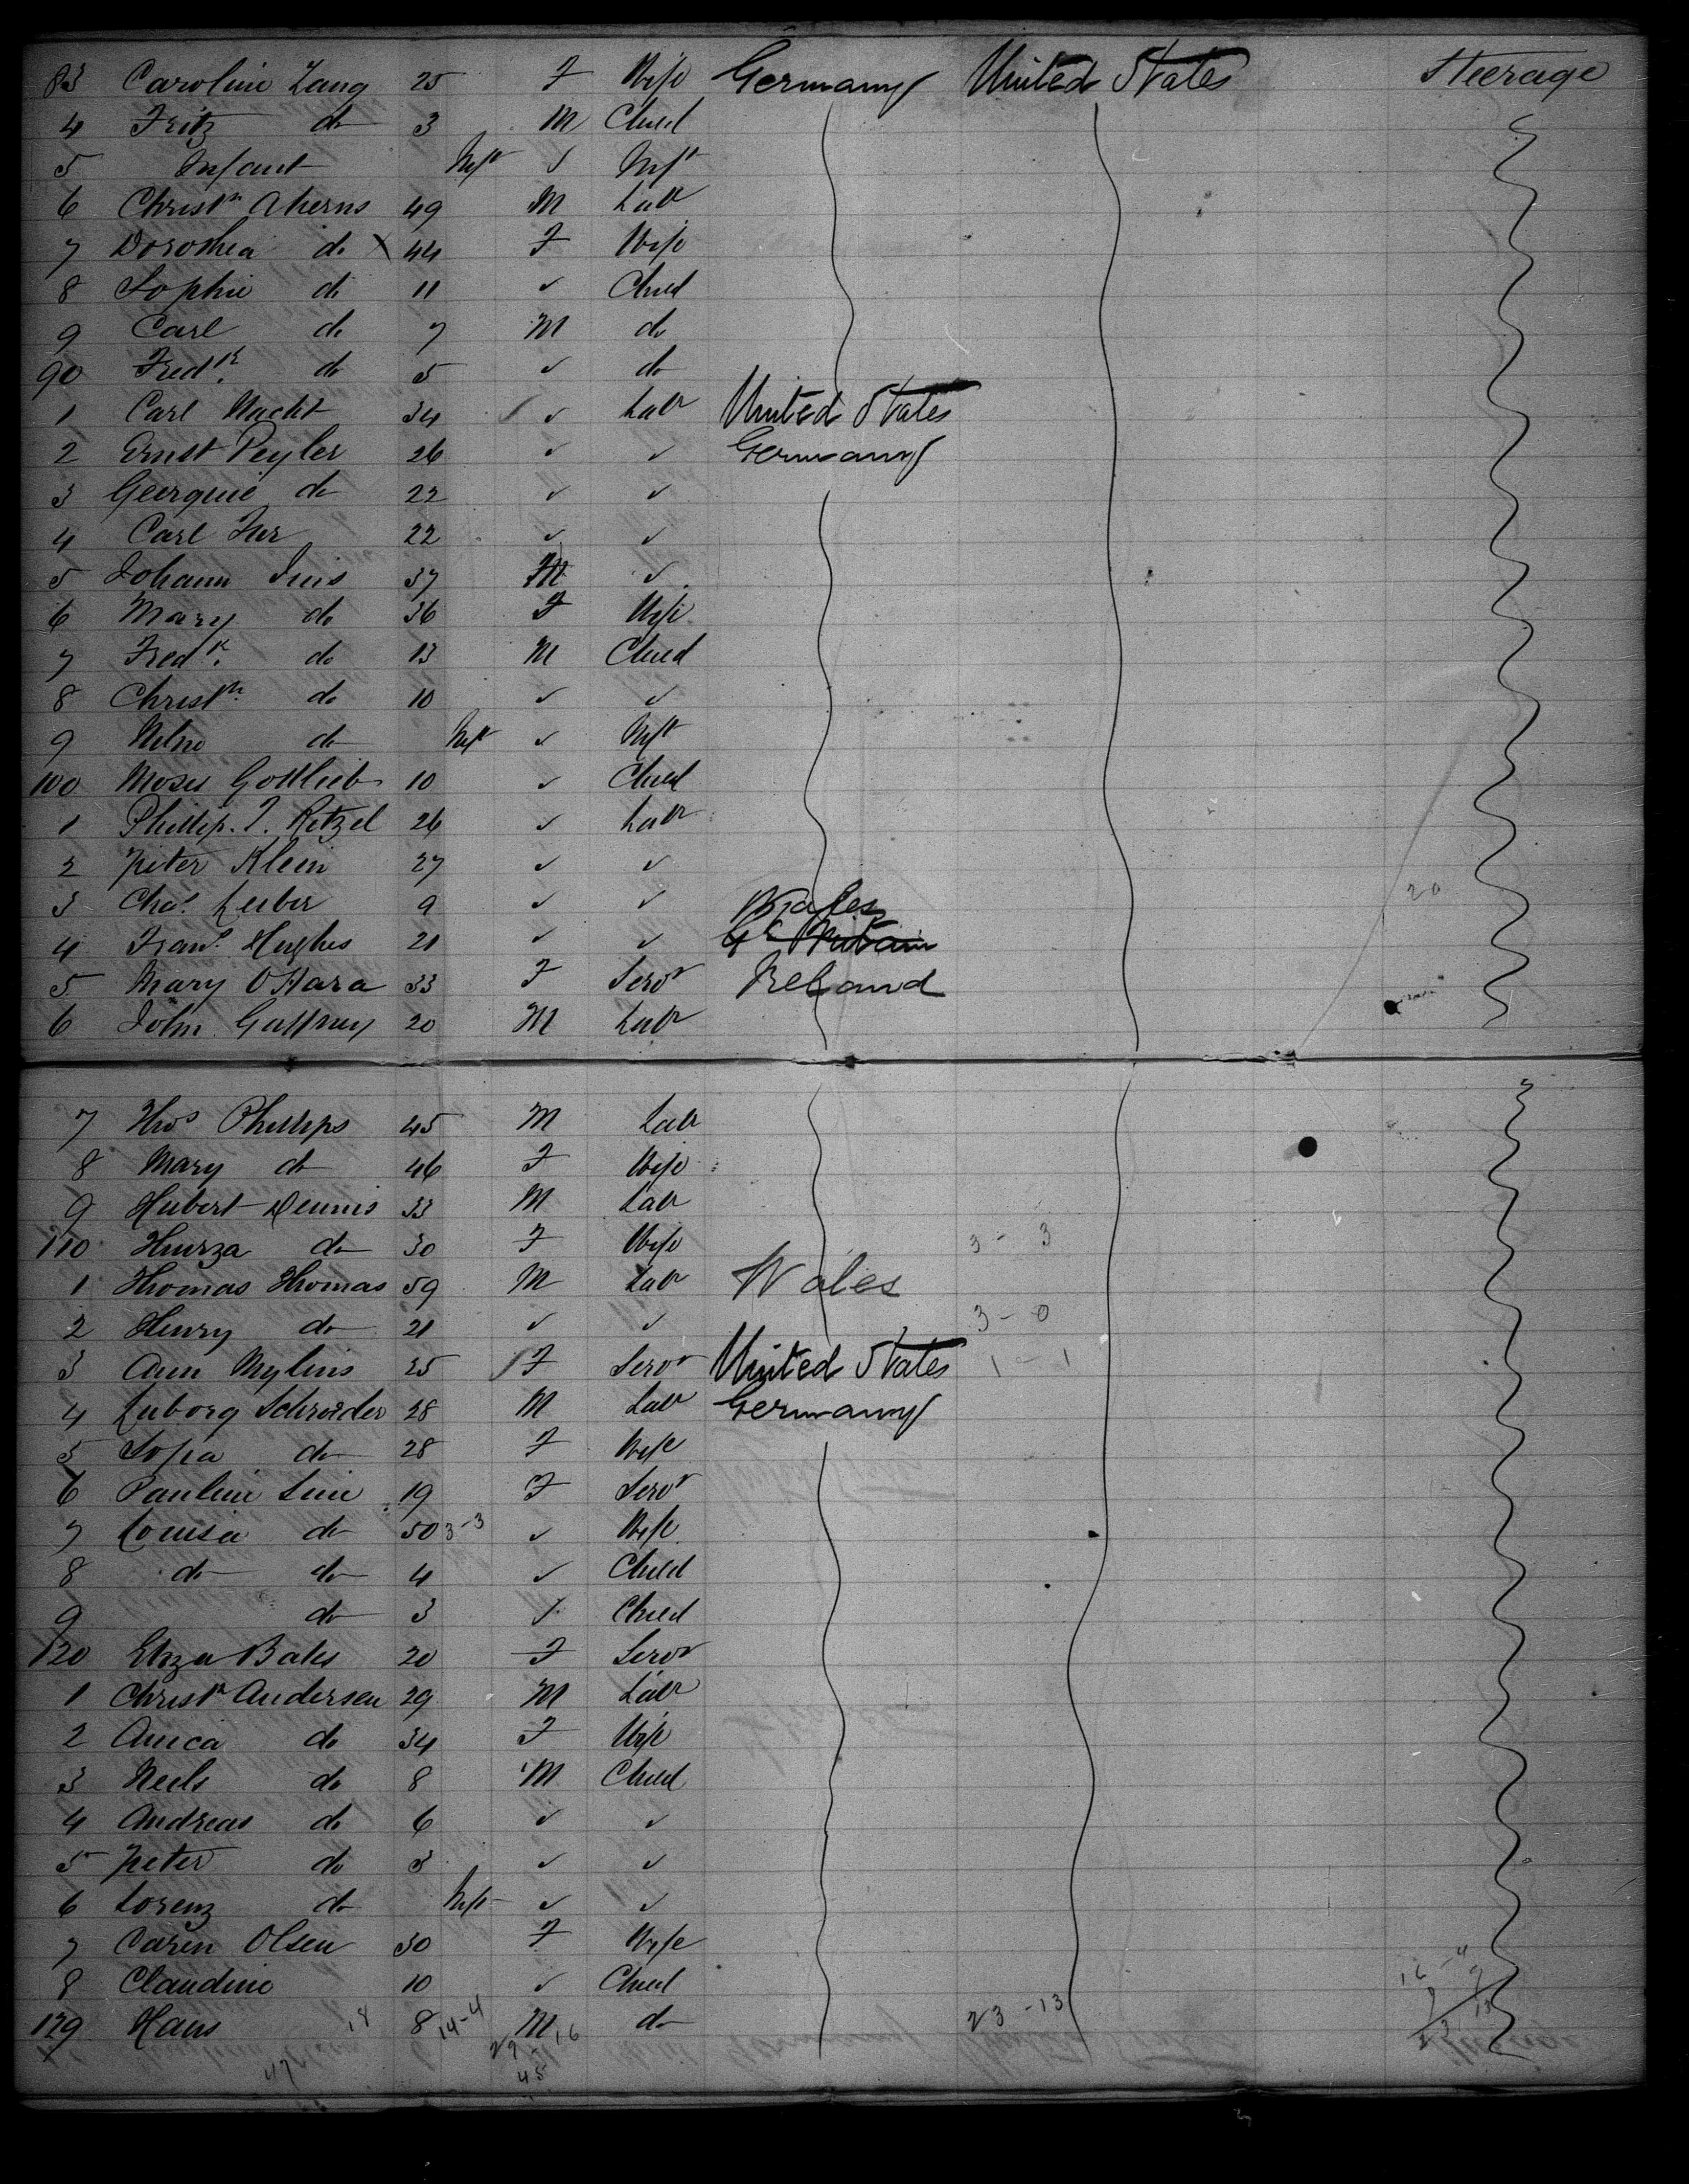 83 Caroline Lang 25 F Wife Germany United States Steerage
4 Fritz do 3 M Child
5 Infant Inft ✓ Inft
6 Christn Aherns 49 M Labr
7 Dorothea do X 44 F Wife
8 Sophie do 11 ✓ Child
9 Carl do 7 M do
90 Fredk. do 5 ✓ do
1 Carl Nacht 34 ✓ Labr United States
2 Ernst Peyler 26 ✓ ✓ Germany
3 Georgie do 22 ✓ ✓
4 Carl 22 ✓ ✓
5 Johann 37 M ✓
6 Mary do 36 F Wife
7 Fredk. do 13 M Child
8 Christn. do 10 ✓ ✓
9 do Inft ✓ Inft
100 Moses Gottlieb 10 ✓ Child
1 Phillip. J. Retzel 26 ✓ Labr
2 Peter Klein 27 ✓ ✓
3 Chas. Leiber 9 ✓ ✓ Wales 20
4 Frans. Hughes 21 ✓ ✓ Gt Britain
5 Mary O'Hara 33 F Servt Ireland
6 John Gaffney 20 M Labr
7 Thos Phillips 45 M Labr
8 Mary do 46 F Wife
9 Hubert Dennis 33 M Labr
110 do 30 F Wife 3 - 3
1 Thomas Thomas 59 M Labr Wales
2 Henry do 21 ✓ ✓ 3 - 0
3 Ann Mylins 25 F Servt United States 1 - 1
4 Luborg Schroeder 28 M Labr Germany
5 Sofia do 28 F Wife
6 Pauline 19 F Servt
7 Louisa do 50 3-3 ✓ Wife
8 do do 4 ✓ Child
9 do 3 ✓ Child
120 Eliza Bates 20 F Servt
1 Christn Andersen 29 M Labr
2 Anica do 34 F Wife
3 Neels do 8 M Child
4 Andreas do 6 ✓ ✓
5 Peter do 3 ✓ ✓
6 Lorenz do Inft ✓ ✓
7 Caren Olsen 30 F Wife
8 Claudine 10 ✓ Child
129 Hans 18 8 14-4 M do 23 -13
29 - 16
47 45